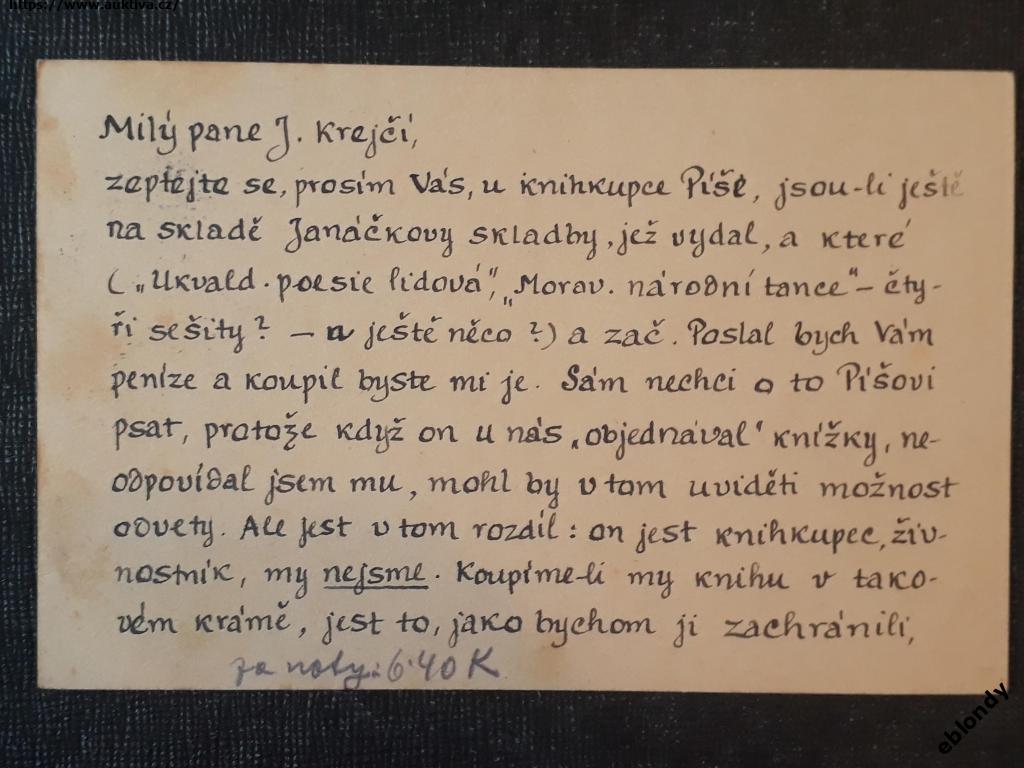 https://www.auktiva.cz/
Milý pane J. Krejčí,
zeptejte se, prosím Vás, u knihkupce Píše, jsou-li ještě
na skladě Janáčkovy skladby, jež vydal, a které
(„Ukvald. poesie lidová“, „Morav. národní tance“ – čty-
ři sešity? – a ještě něco?) a zač. Poslal bych Vám
peníze a koupil byste mi je. Sám nechci o to Píšovi
psat, protože když on u nás „objednával‘ knížky, ne-
odpovídal jsem mu, mohl by v tom uviděti možnost
odvety. Ale jest v tom rozdíl: on jest knihkupec, živ-
nostník, my nejsme. Koupíme-li my knihu v tako-
vém krámě, jest to, jako bychom ji zachránili,
za noty: 6·40 K
eblondy